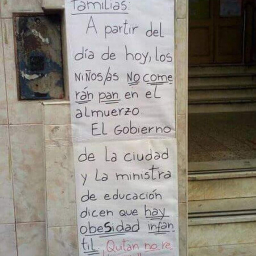 familias:
A partir del
día de hoy, los
NIÑOS/as NO come
rán pan en el
almuerzo
El Gobierno
de la ciudad
y la ministra
de educación
dicen que hay
obesidad infan
til, Quitan no re